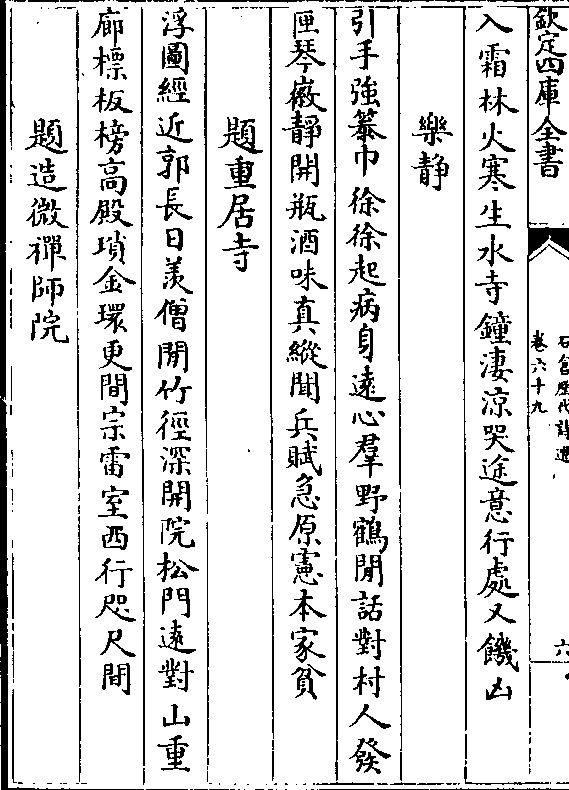 欽定四庫全書
石倉歷代詩選
卷六十九
六
入霜林火寒生水寺鐘淒涼哭途意行處又饑凶
樂静
引手強篸巾徐徐起病身遠心羣野鶴閒話對村人發
匣琴徽靜開瓶酒味真縱聞兵賦急原憲本家貧
題重居寺
浮圖經近郭長日羡僧閒竹徑深開院松門遠對山重
廊標板榜高殿瑣金環更間宗雷室西行咫尺間
題造微禪師院